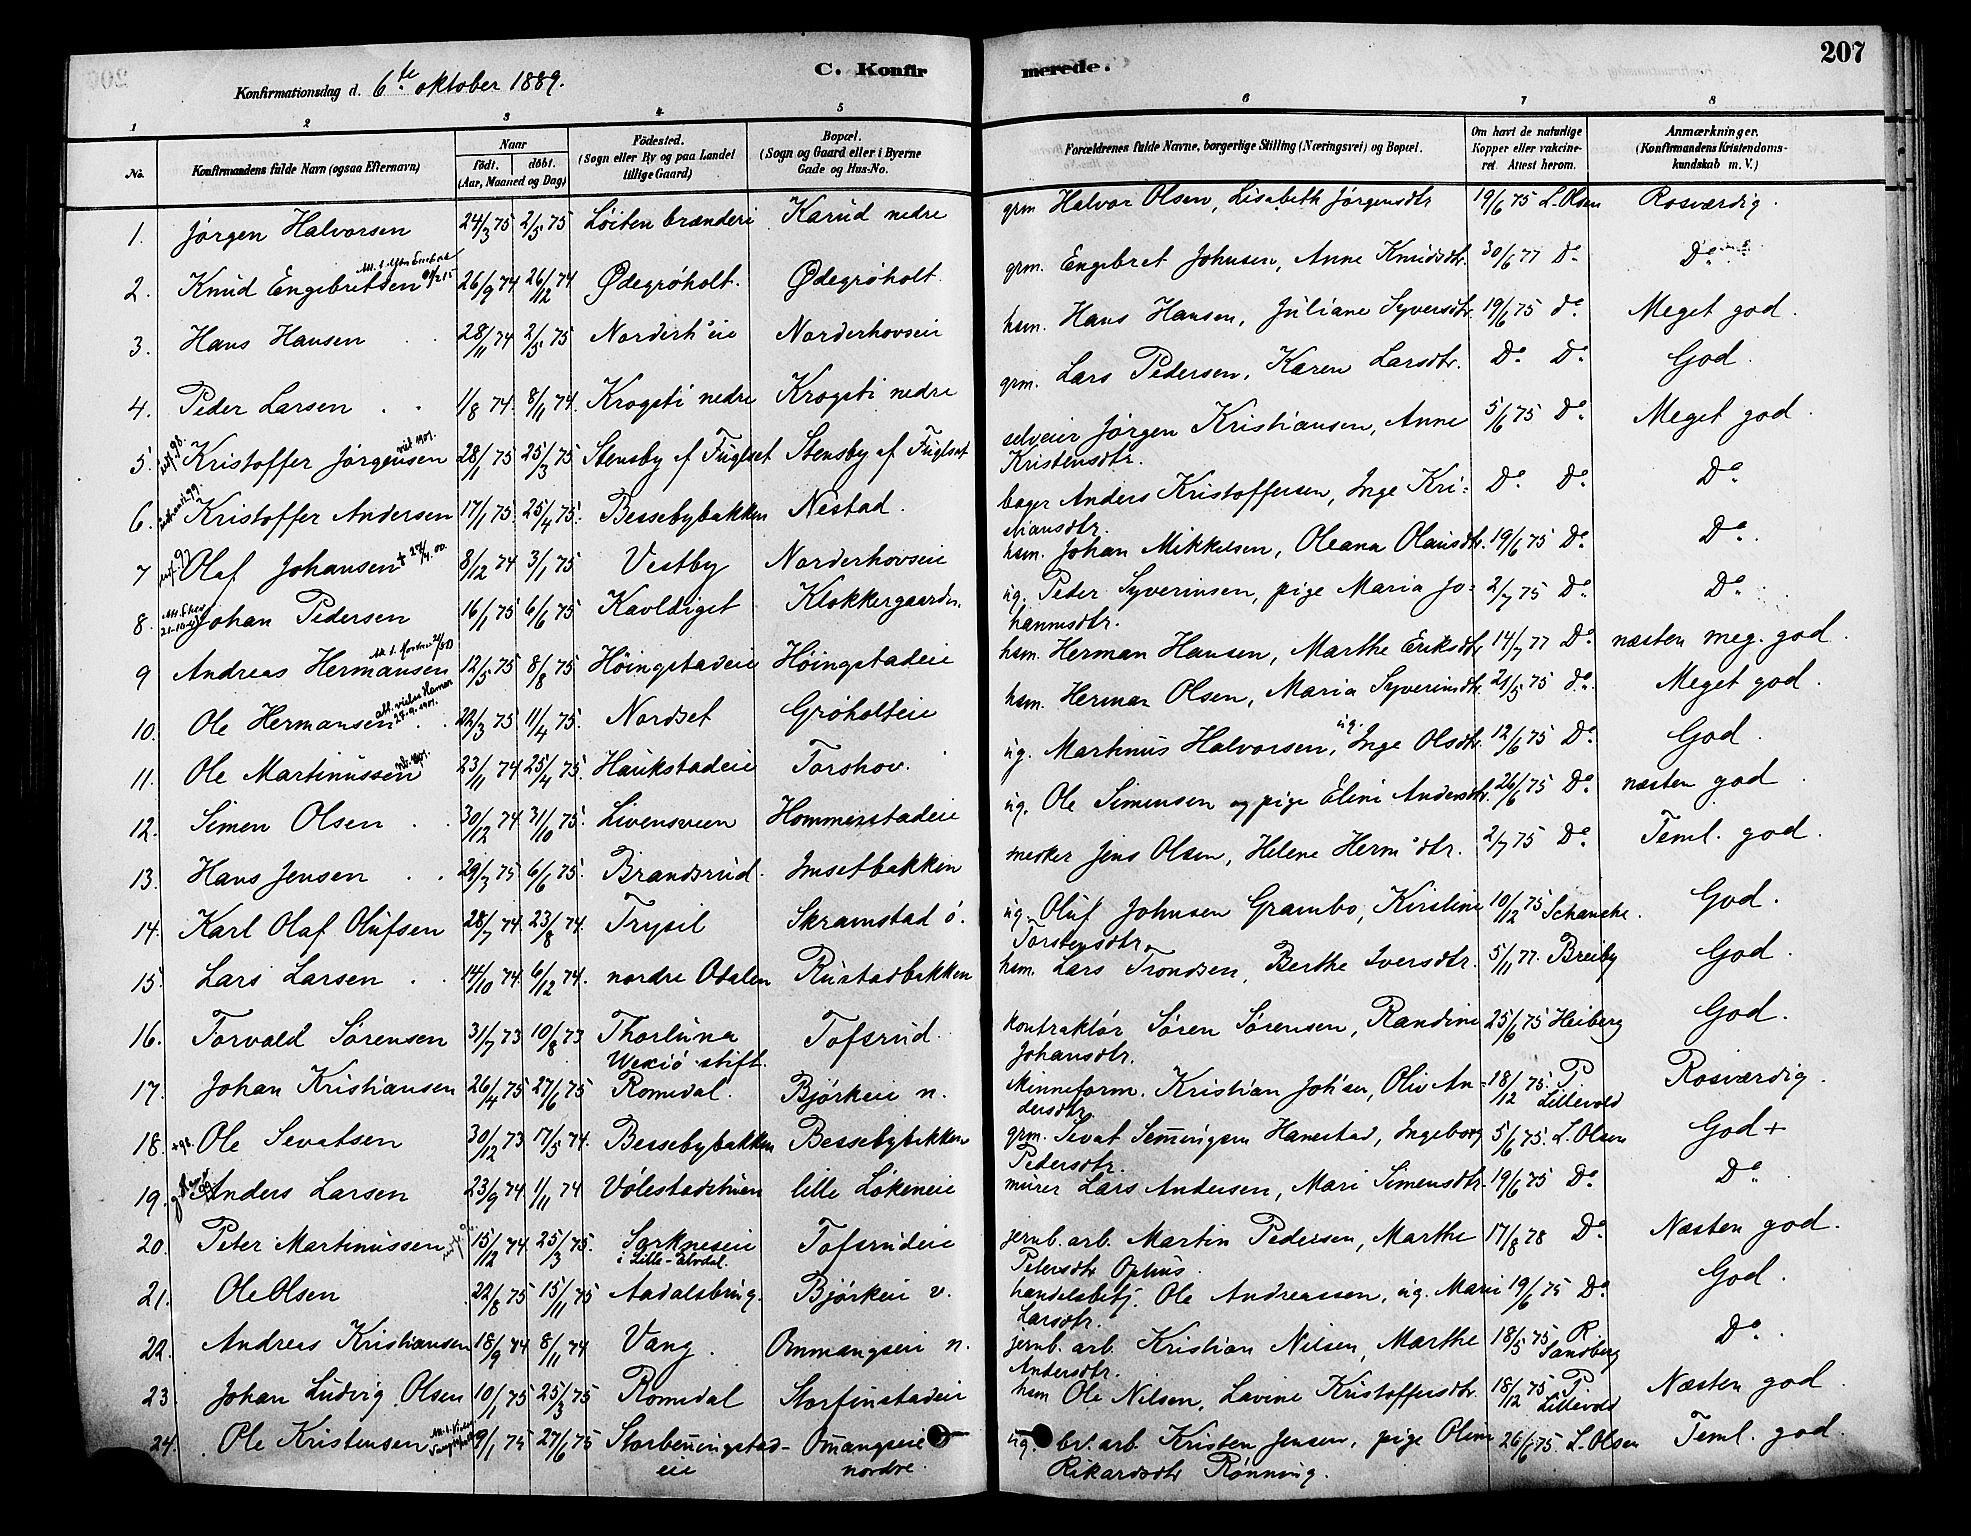 207
C. Konfirmerede.
Konfirmationsdag d. 6te oktober 1889.
1 2 3 4 5 6 7 8
No. Konfirmandens fulde Navn (ogsaa Efternavn) Naar födt. döbt. (Aar, Maaned og Dag) Födested. (Sogn eller By og paa Landet tillige Gaard) Bopæl. (Sogn og Gaard eller i Byerne Gade og Hus-No. Forældrenes fulde Navne, borgerlige Stilling (Næringsvei) og Bopæl. Om havt de naturlige Kopper eller vakcineret. Attest herom. Anmærkninger. (Konfirmandens Kristendomskundskab m. V.)
1. Jørgen Halvorsen 24/3 75 2/5 75 Løiten brænderi Karud nedre grm Halvor Olsen, Lisabeth Jørgensdtr 19/6 75 L. Olsen Rosværdig.
2. Knud Engebretsen 26/9 74 26/12 74 Ødegrøholt. Ødegrøholt. grm. Engebret Johnsen, Anne Knudsdtr. 30/6 77 Do Do
3. Hans Hansen 28/11 74 2/5 75 Norderh° eie Norderhovseie hsm. Hans Hansen, Juliane Syversdtr. 19/6 75 do. Meget god.
4. Peder Larsen 1/8 74. 8/11 74. Krogsti nedre Krogsti nedre grm. Lars Pedersen, Karen Larsdtr. Do Do God.
5. Kristoffer Jørgensen 28/1 75 25/3 75 Stensby af Fuglset Stensby af Fuglset selveier Jørgen Kristiansen, Anne Kristensdtr. 5/6 75 Do Meget god.
6. Kristoffer Andersen 17/1 75. 25/4 75. Bessebybakken Nestad. bager Anders Kristoffersen, Inge Kristiansdtr. Do Do Do
7 Olaf Johansen 8/12 74 3/1 75 Vestby Norderhovseie hsm. Johan Mikkelsen, Oleana Olausdtr. 19/6 75 Do Do
8. Johan Pedersen 16/1 75. 6/6 75. Kavldiget Klokkergaarden. ug. Peder Syverinsen, pige Maria Johannisdtr. 2/7 75 Do Do
9 Andreas Hermansen 12/5 75 8/8 75 Høingstadeie Høingstadeie hsm. Herman Hansen, Marthe Eriksdtr 14/7 77 Do næsten meg. god.
10. Ole Hermansen 22/3 75 11/4 75. Nordset Grøholteie hsm. Herman Olsen, Maria Syverinsdtr. 21/5 75 do. Meget god.
11. Ole Martinussen 23/11 74 25/4 75. Haukstadeie Torshov. ug. Martinus Halvorsen, ug. Inge Olsdtr. 12/6 75 Do God.
12. Simen Olsen 30/12 74 31/10 75. Livensveen Hommerstadeie ug. Ole Simensen og pige Elini Andersdtr. 26/6 75 Do næsten god
13. Hans Jensen 29/3 75 6/6 75. Brandsrud. Imsetbakken snekker Jens Olsen, Helene Herm° dtr. 2/7 75 Do Teml. god.
14. Karl Olaf Olufsen 28/7 74. 23/8 74. Trysil Skramstad ø. ug. Oluf Johnsen Grambo, Kirstine Torstensdtr. 10/12 75 Schanche. God.
15. Lars Larsen 14/10 74. 6/12 74. nordre Odalen Rustadbakken hsm. Lars Trondsen, Berthe Iversdtr. 5/11 77. Breiby God.
16. Torvald Sørensen 31/7 73 10/8 73 Thorluna Wexiö stift. Tofsrud. kontraktør Søren Sørensen, Randine Johansdtr. 25/6 75 Heiberg God.
17. Johan Kristiansen 26/4 75 27/6 75 Romedal. Bjørkeie n. Minneform. Kristian Joh'sen, Oliv Andersdtr. 18/12 75. P. Lillevold Rosværdig.
18. +98. Ole Sevatsen 30/12 73 17/5 74. Bessebybakken Bessebybakken grm. Sevat Semmingsen Hanestad, Ingeborg Pedersdtr. 5/6 75. L. Olsen God +
19. Anders Larsen 23/9 74. 1/11 74 Vølestadstuen lille Løkeneie murer Lars Andersen, Mari Simensdtr. 19/6 75 Do Do
20. Peter Martinussen 15/12 74. 25/3 75. Sorkneseie i Lille-Elvdal. Tofsrudeie jernb. arb. Martin Pedersen, Marthe Petersdtr Ophus. 17/8 78 Do Næsten god.
21. Ole Olsen 22/8 75 15/11 75 Aadalsbrug. Bjørkeie v. handelsbetj. Ole Andreassen, ug. Mari Larsdtr. 19/6 75 Do God.
22. Andreas Kristiansen 18/9 74 8/11 74 Vang. Ommangseie n. jernb. arb. Kristian Nilsen, Marthe Andersdtr. 18/5 75 R. Sandberg Do
23. Johan Ludvig Olsen 10/1 75 25/3 75 Romedal Storfinstadeie hsm Ole Nilsen, Lavine Kristoffersdtr. 18/12 75 P. Lillevold Næsten god.
24. Ole Kristensen 9/1 75 27/6 75 Storbenningstad-eie Omangseie nordre. ug. br. arb. Kristen Jensen, pige Oline Rikardsdtr Rønning. 26/6 75. L. Olsen Teml. god.